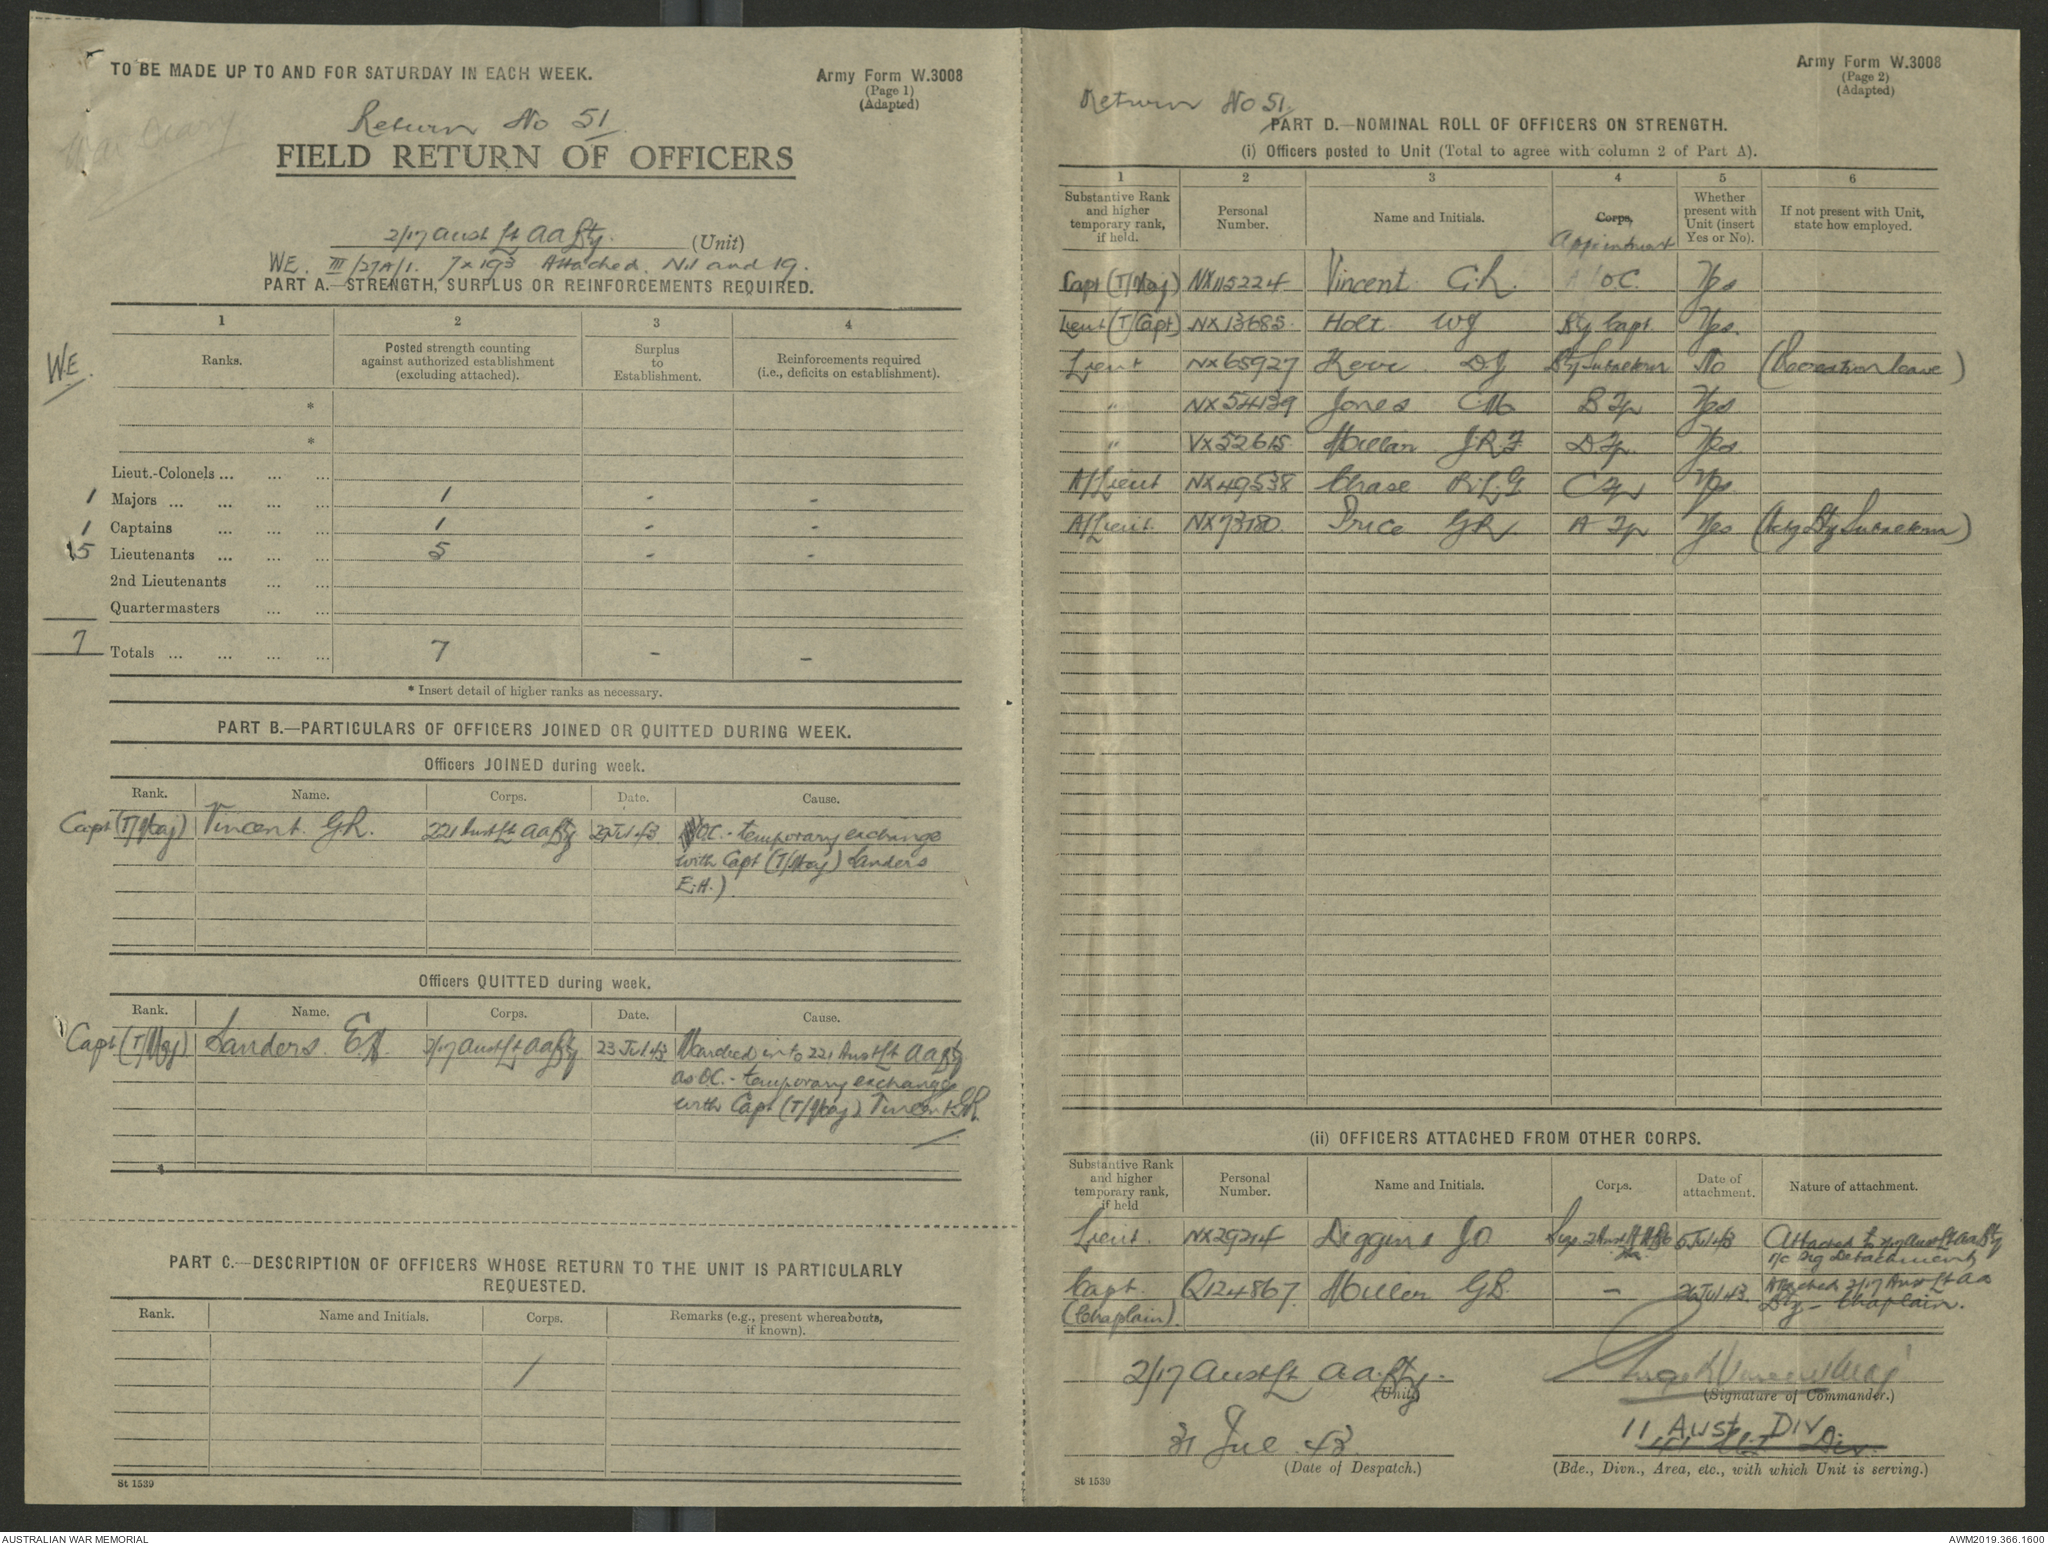 TO BE MADE UP TO AND FOR SATURDAY IN EACH WEEK.
Army Form W.3008
(Page 1)
(Adapted)
War Diary
Return No 51
FIELD RETURN OF OFFICERS
2/17 Aust Lt AA Bty. (Unit)
WE. III/27A/1. 7 x 193 Attached. Nil and 19.
PART A.—STRENGTH, SURPLUS OR REINFORCEMENTS REQUIRED.
1 2 3 4
Ranks.
Posted strength counting against authorized establishment (excluding attached).
Surplus to Establishment.
Reinforcements required (i.e., deficits on establishment).
WE.
*
*
Lieut.-Colonels ... ... ...
1 Majors ... ... ... 1 - -
1 Captains ... ... 1 - -
5 Lieutenants ... ... ... 5 - -
2nd Lieutenants ... ...
Quartermasters ... ...
7 Totals ... ... ... ... 7 - -
* Insert detail of higher ranks as necessary.
PART B.—PARTICULARS OF OFFICERS JOINED OR QUITTED DURING WEEK.
Officers JOINED during week.
Rank. Name. Corps. Date. Cause.
Capt (T/Maj) Vincent G.R. 221 Aust Lt AA Bty Jul 43 OC. - temporary exchange
with Capt (T/Maj) Sanders
E.H.)
Officers QUITTED during week.
Rank. Name. Corps. Date. Cause.
Capt (T/Maj) Sanders E.H. 2/17 Aust Lt AA Bty 23 Jul 43 Marched into 221 Aust Lt AA Bty
as OC. - temporary exchange
with Capt (T/Maj) Vincent GR.
PART C.—DESCRIPTION OF OFFICERS WHOSE RETURN TO THE UNIT IS PARTICULARLY
REQUESTED.
Rank. Name and Initials. Corps. Remarks (e.g., present whereabouts, if known).
/
St 1539
Army Form W.3008
(Page 2)
(Adapted)
Return No 51.
PART D.—NOMINAL ROLL OF OFFICERS ON STRENGTH.
(i) Officers posted to Unit (Total to agree with column 2 of Part A).
1 2 3 4 5 6
Substantive Rank and higher temporary rank, if held.
Personal Number.
Name and Initials.
Corps,
Appointment
Whether present with Unit (insert Yes or No).
If not present with Unit, state how employed.
Capt (T/Maj) NX115224 Vincent G.R. OC. Yes
Lieut (T/Capt) NX13685. Holt WJ Bty Capt. Yes.
Lieut NX65927 Kerr D.J Bty Subaltern No (Recreation leave)
" NX54139 Jones CM B Tp Yes
" VX52615 J.R.F D Tp. Yes
A/Lieut NX49538 Chase R.L.G C Tp Yes
A/Lieut. NX73180. Price GR. A Tp Yes (Actg Bty Subaltern)
(ii) OFFICERS ATTACHED FROM OTHER CORPS.
Substantive Rank and higher temporary rank, if held
Personal Number.
Name and Initials.
Corps.
Date of attachment.
Nature of attachment.
Lieut. NX29214 Diggins JO 5 Jul 43 Attached to 2/17 Aust Lt AA Bty
i/c Sig Detachment
Capt. (Chaplain). Q124867. Miller GB. - 26 Jul 43. Attached 2/17 Aust Lt AA
Bty - Chaplain.
2/17 Aust Lt AA Bty.
(Unit)
(Signature of Commander.)
31 Jul 43.
(Date of Despatch.)
11 AUST DIV.
(Bde., Divn., Area, etc., with which Unit is serving.)
St 1539
AUSTRALIAN WAR MEMORIAL
AWM2019.366.1600